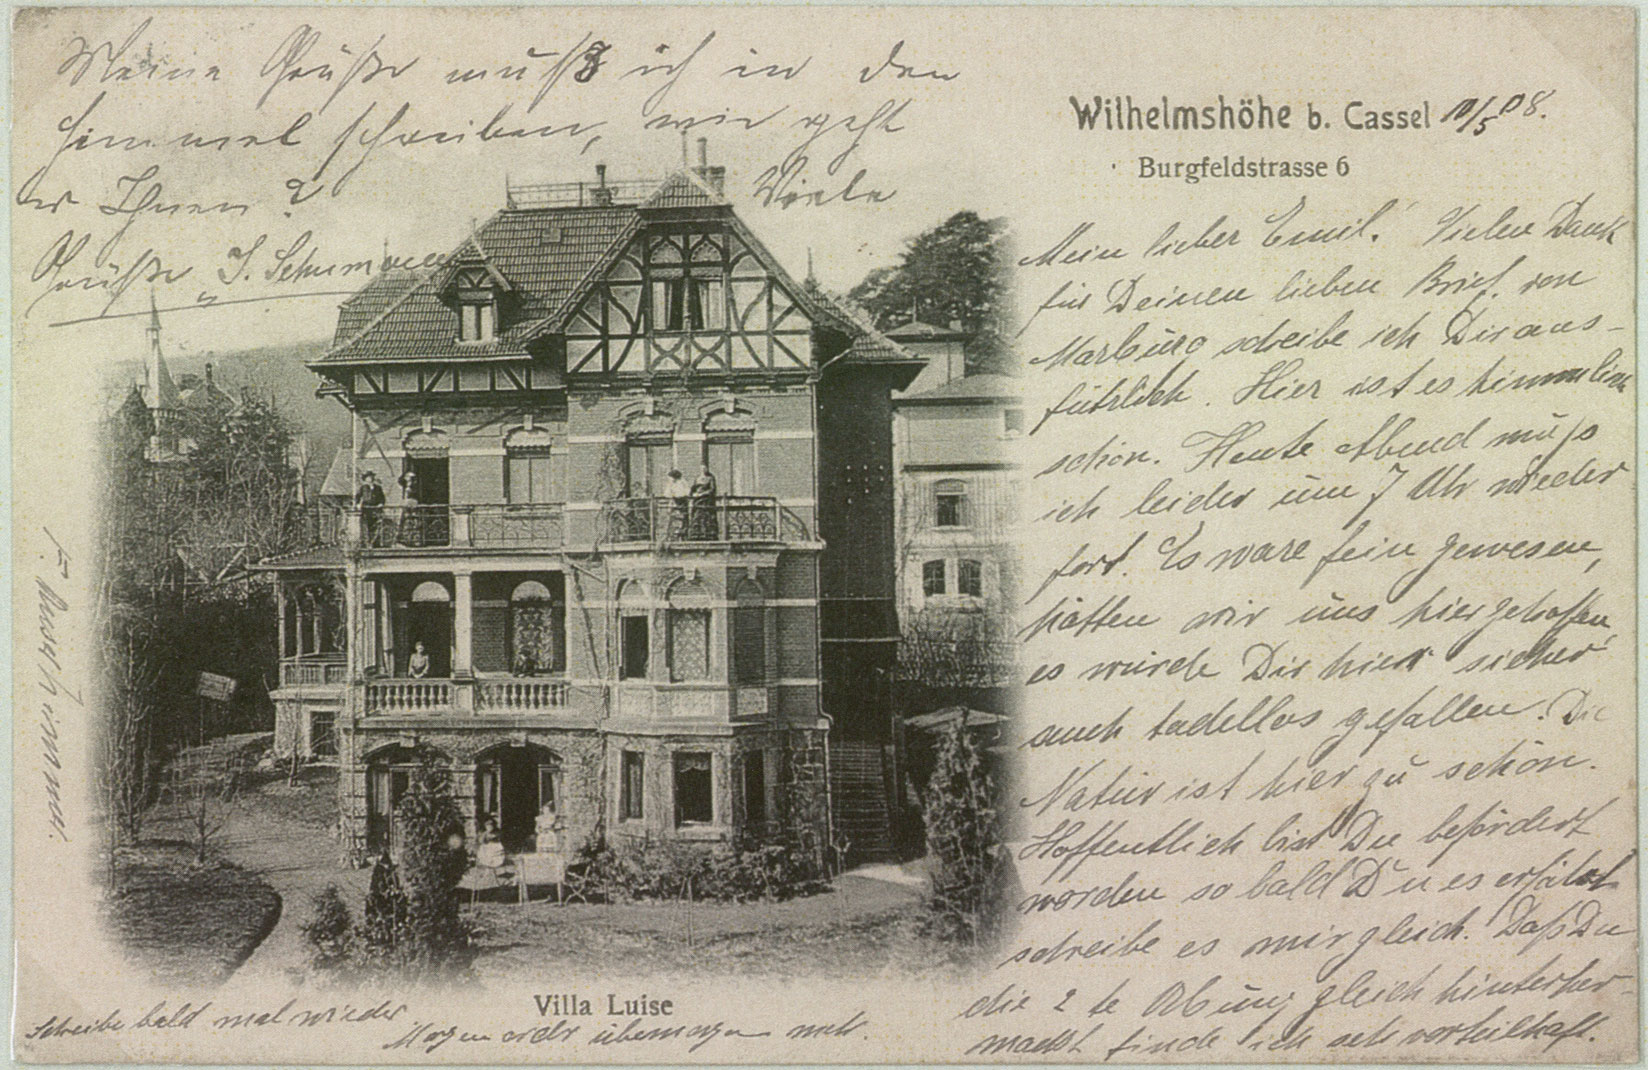 Meine Grüße muß ich in den
Himmel schreiben, wie geht
es Ihnen? Viele
Grüße J. Schumann
Wilhelmshöhe b. Cassel 10/5 08.
Burgfeldstrasse 6
Mein lieber Emil! Vielen Dank
für Deinen lieben Brief. von
Marburg schreibe ich Dir aus-
führlich. Hier ist es himmlisch
schön. Heute Abend muß
ich leider um 7 Uhr wieder
fort. Es wäre fein gewesen,
hätten wir uns hier getroffen,
es würde Dir hier sicher
auch tadellos gefallen. Die
Natur ist hier zu schön.
Hoffentlich bist Du befördert
worden so bald Du es erfährst
schreibe es mir gleich. Daß Du
die 2 te Übung gleich hinterher-
machst finde ich sehr vorteilhaft.
Villa Luise
Schreibe bald mal wieder
Morgen oder übermorgen mehr.